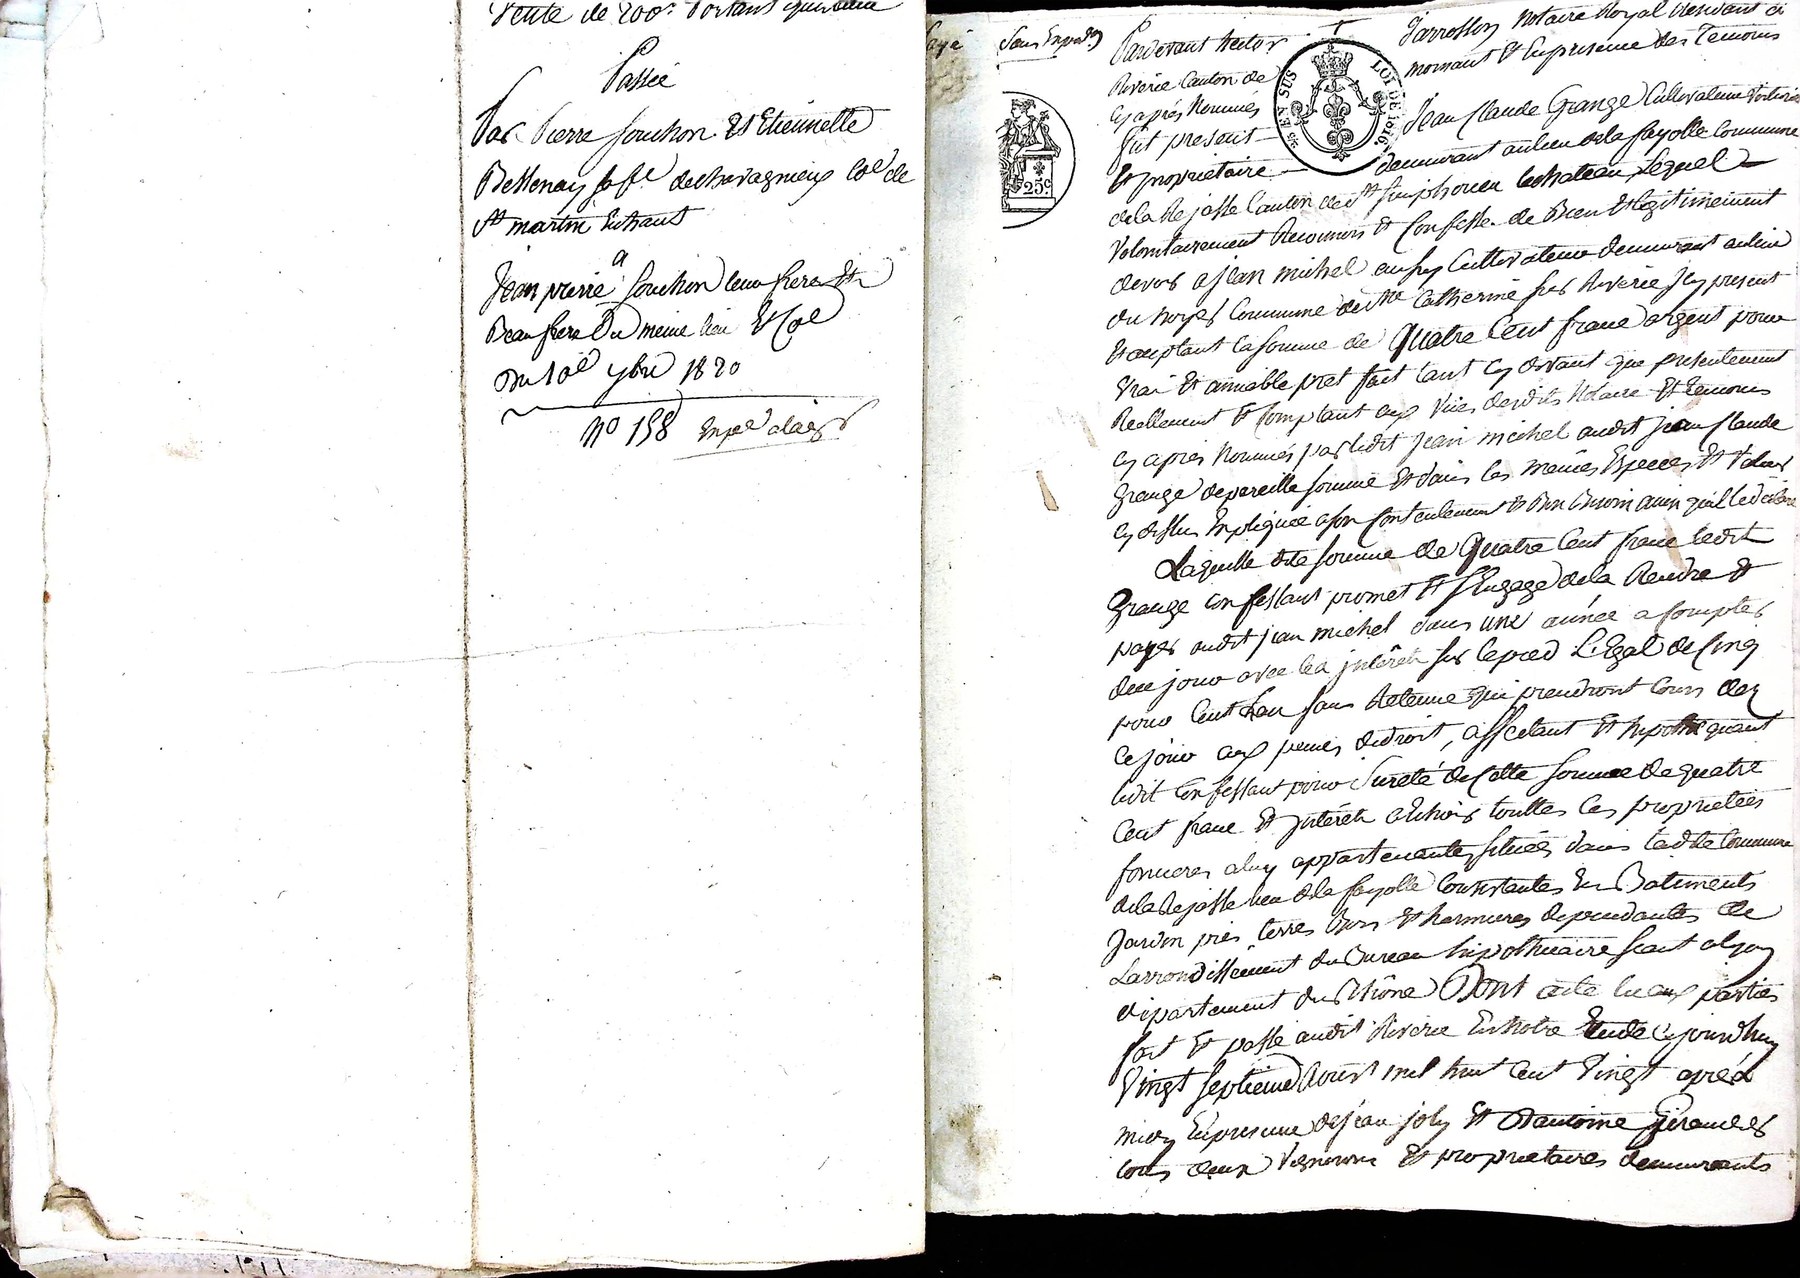 Vente de 200f portant quittance
Passée
Par Pierre souchon Et Etiennette
Bessenay sa fe dechavagnieux Cne de
St martin En haut
a
Jean pierre souchon leur frere Et
Beaufrere Du meme lieu Et Cne
Du 10e 7bre 1820
No 158
payé
25c
25 EN SUS
LOI DE 1816
Pardevant hector Jarrosson Notaire Royal Residant a
Riverie Canton de mornant Et En presence des Temoins
cy après Nommés
fut present Jean Claude Grange Cultivateur voiturier
Et proprietaire demeurant au lieu dela fayolle Commune
dela Rejasse Canton de St Simphorien lechateau Lequel
Volontairement Reconnois Et Confesse de Bien Et légitimement
devoir a Jean michel aussy Cultivateur demeurant au lieu
du noyer Commune de Ste Catherine sur Riverie Jcy present
Et aceptant la somme de Quatre Cent franc argent pour
vrai Et amiable pret fait tant cy devant que presentement
Reellement Et Comptant aux vües desdits Notaire Et temoins
cy après Nommés par ledit jean michel audit jean Claude
Grange de pareille somme Et dans les mêmes Especes Et valeur
cy dessus Expliquée a son Contentement Et Bien ainsi qu'il le déclare
Laquelle dite somme de Quatre Cent franc ledit
Grange confessant promet Et s'Engage de la Rendre Et
payer audit jean michel dans une année a compter
de ce jour avec les jntérêts sur le pied L'Egal de Cinq
pour Cent L'an sans Retenue qui prendront Cours dez
ce jour aux peines de droit, affectant Et hipothéquant
ledit Confessant pour Sureté de Cette somme de quatre
Cent franc Et jntérêts a Echoir touttes les proprietées
foncieres a luy appartenantes situées dans ladite Commune
dela Rejasse lieu dela fayolle Consistantes En Batiments
Jardin prés terres Bois Et hermieres dependantes de
Larrondissement du Bureau hipothecaire seant a lyon
département du Rhône Dont acte lu aux parties
fait Et passé audit Riverie En notre Etude Cejourd'huy
Vingt Septieme Aoust mil huit Cent Vingt après
midy En presence de jean joly Et d'antoine
tous deux Vignerons Et proprietaires demeurants